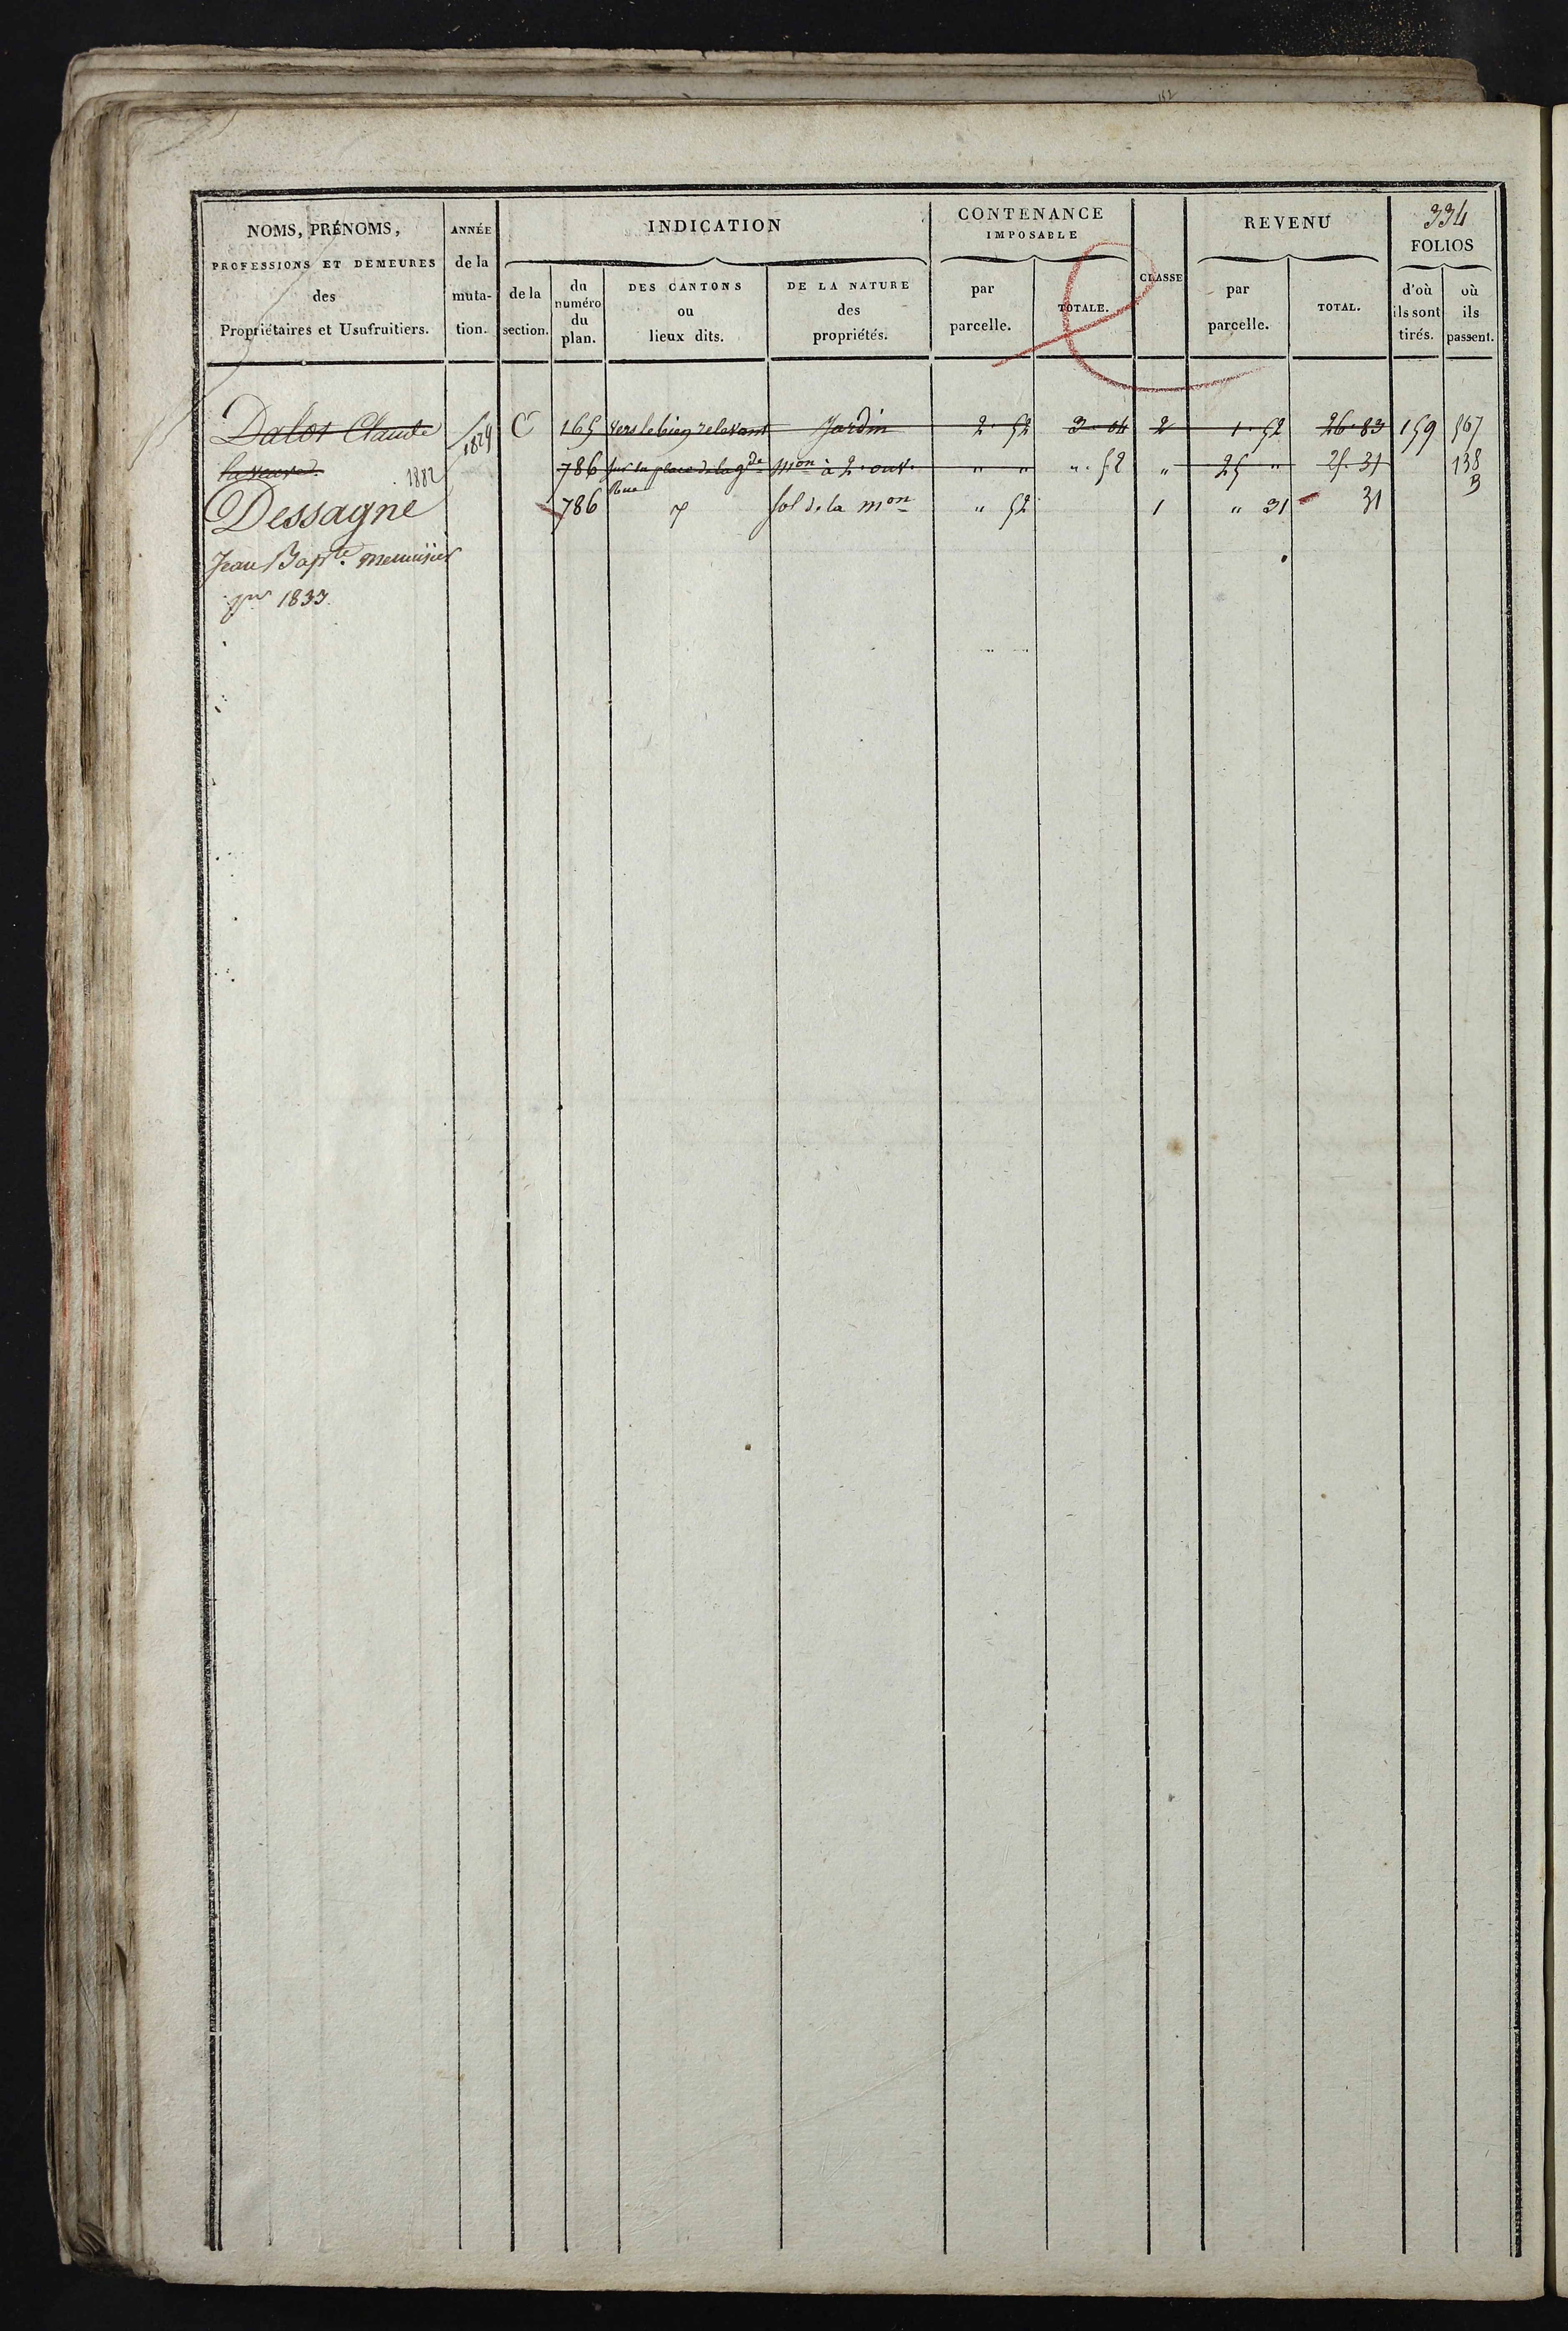 152
334
NOMS, PRÉNOMS, PROFESSIONS ET DEMEURES des Propriétaires et Usufruitiers.
ANNÉE de la muta- tion.
INDICATION
de la section.
du numéro du plan.
DES CANTONS ou lieux dits.
DE LA NATURE des propriétés.
CONTENANCE IMPOSABLE
par parcelle.
TOTALE.
CLASSE
REVENU
par parcelle.
TOTAL.
FOLIOS
d'où ils sont tirés.
où ils passent.
Dalos Claude 1829 C 165 vers le bien relevant Jardin 2. 52 3 04 2 1. 52 26. 83 159 567
la veuve 1882 786 sur la place de la gde Rue mon à 2. ouv. " " ". 52 " 25 " 25. 31 138 B
Dessagne 786 sol de la mon " 52 1 " 31 31
Jean Bapte. menuisier
pr 1833.